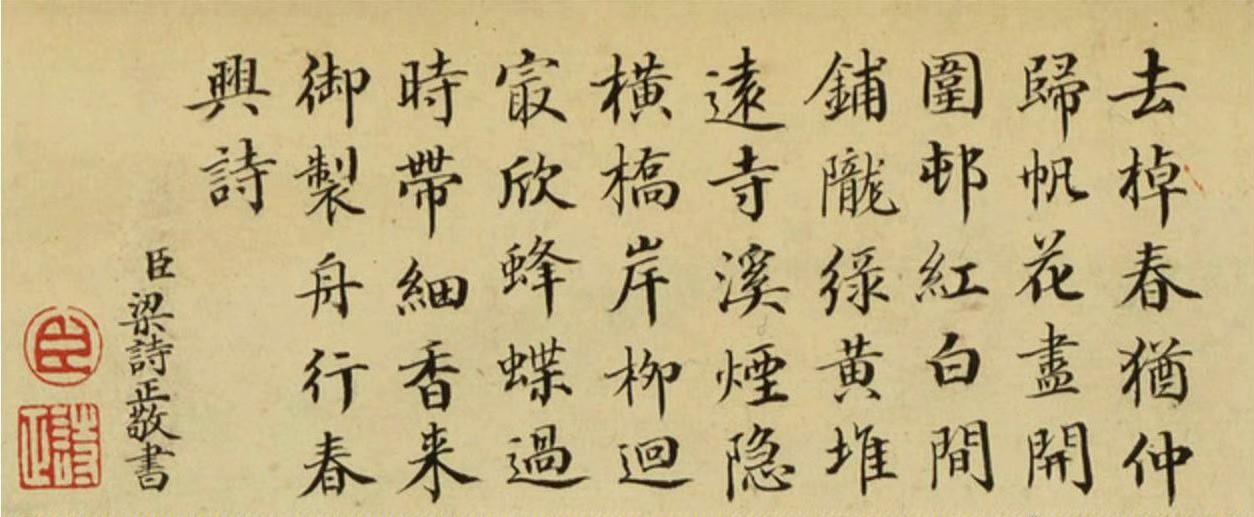 去棹春猶仲
歸帆花盡開
圍邨紅白間
鋪隴綠黄堆
遠寺溪煙隐
橫橋岸柳迴
㝡欣蜂蝶過
時帶細香来
御製舟行春
興詩
臣梁詩正敬書
臣
詩正